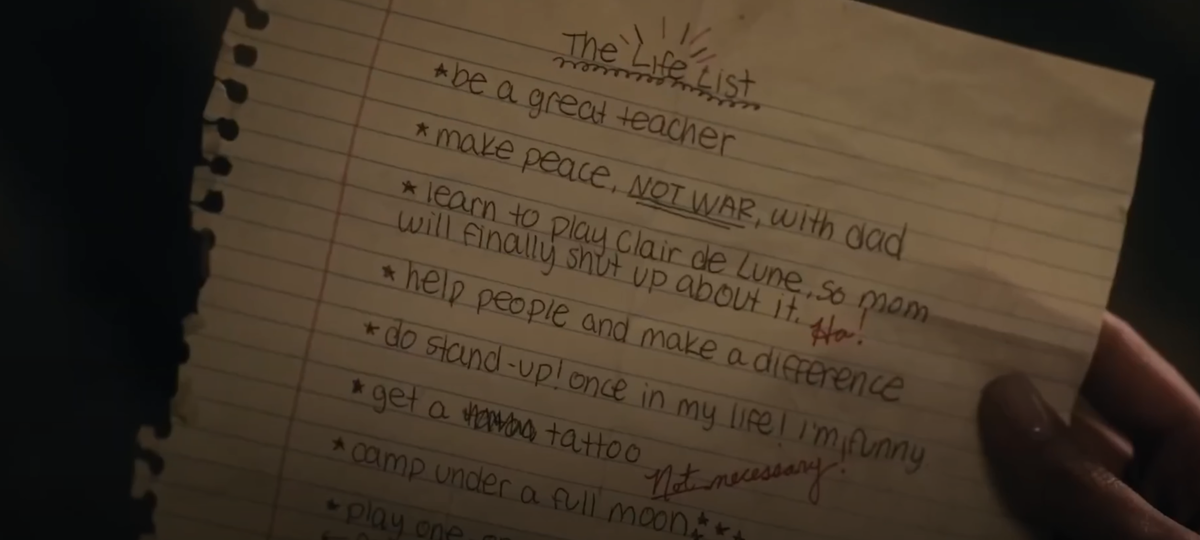 The Life List
*be a great teacher
*make peace, NOT WAR, with dad
*learn to play Clair de Lune, so mom
will finally shut up about it. Ha!
*help people and make a difference
*do stand-up! once in my life! i'm funny
*get a tattoo
Not necessary!
*camp under a full moon
*play one